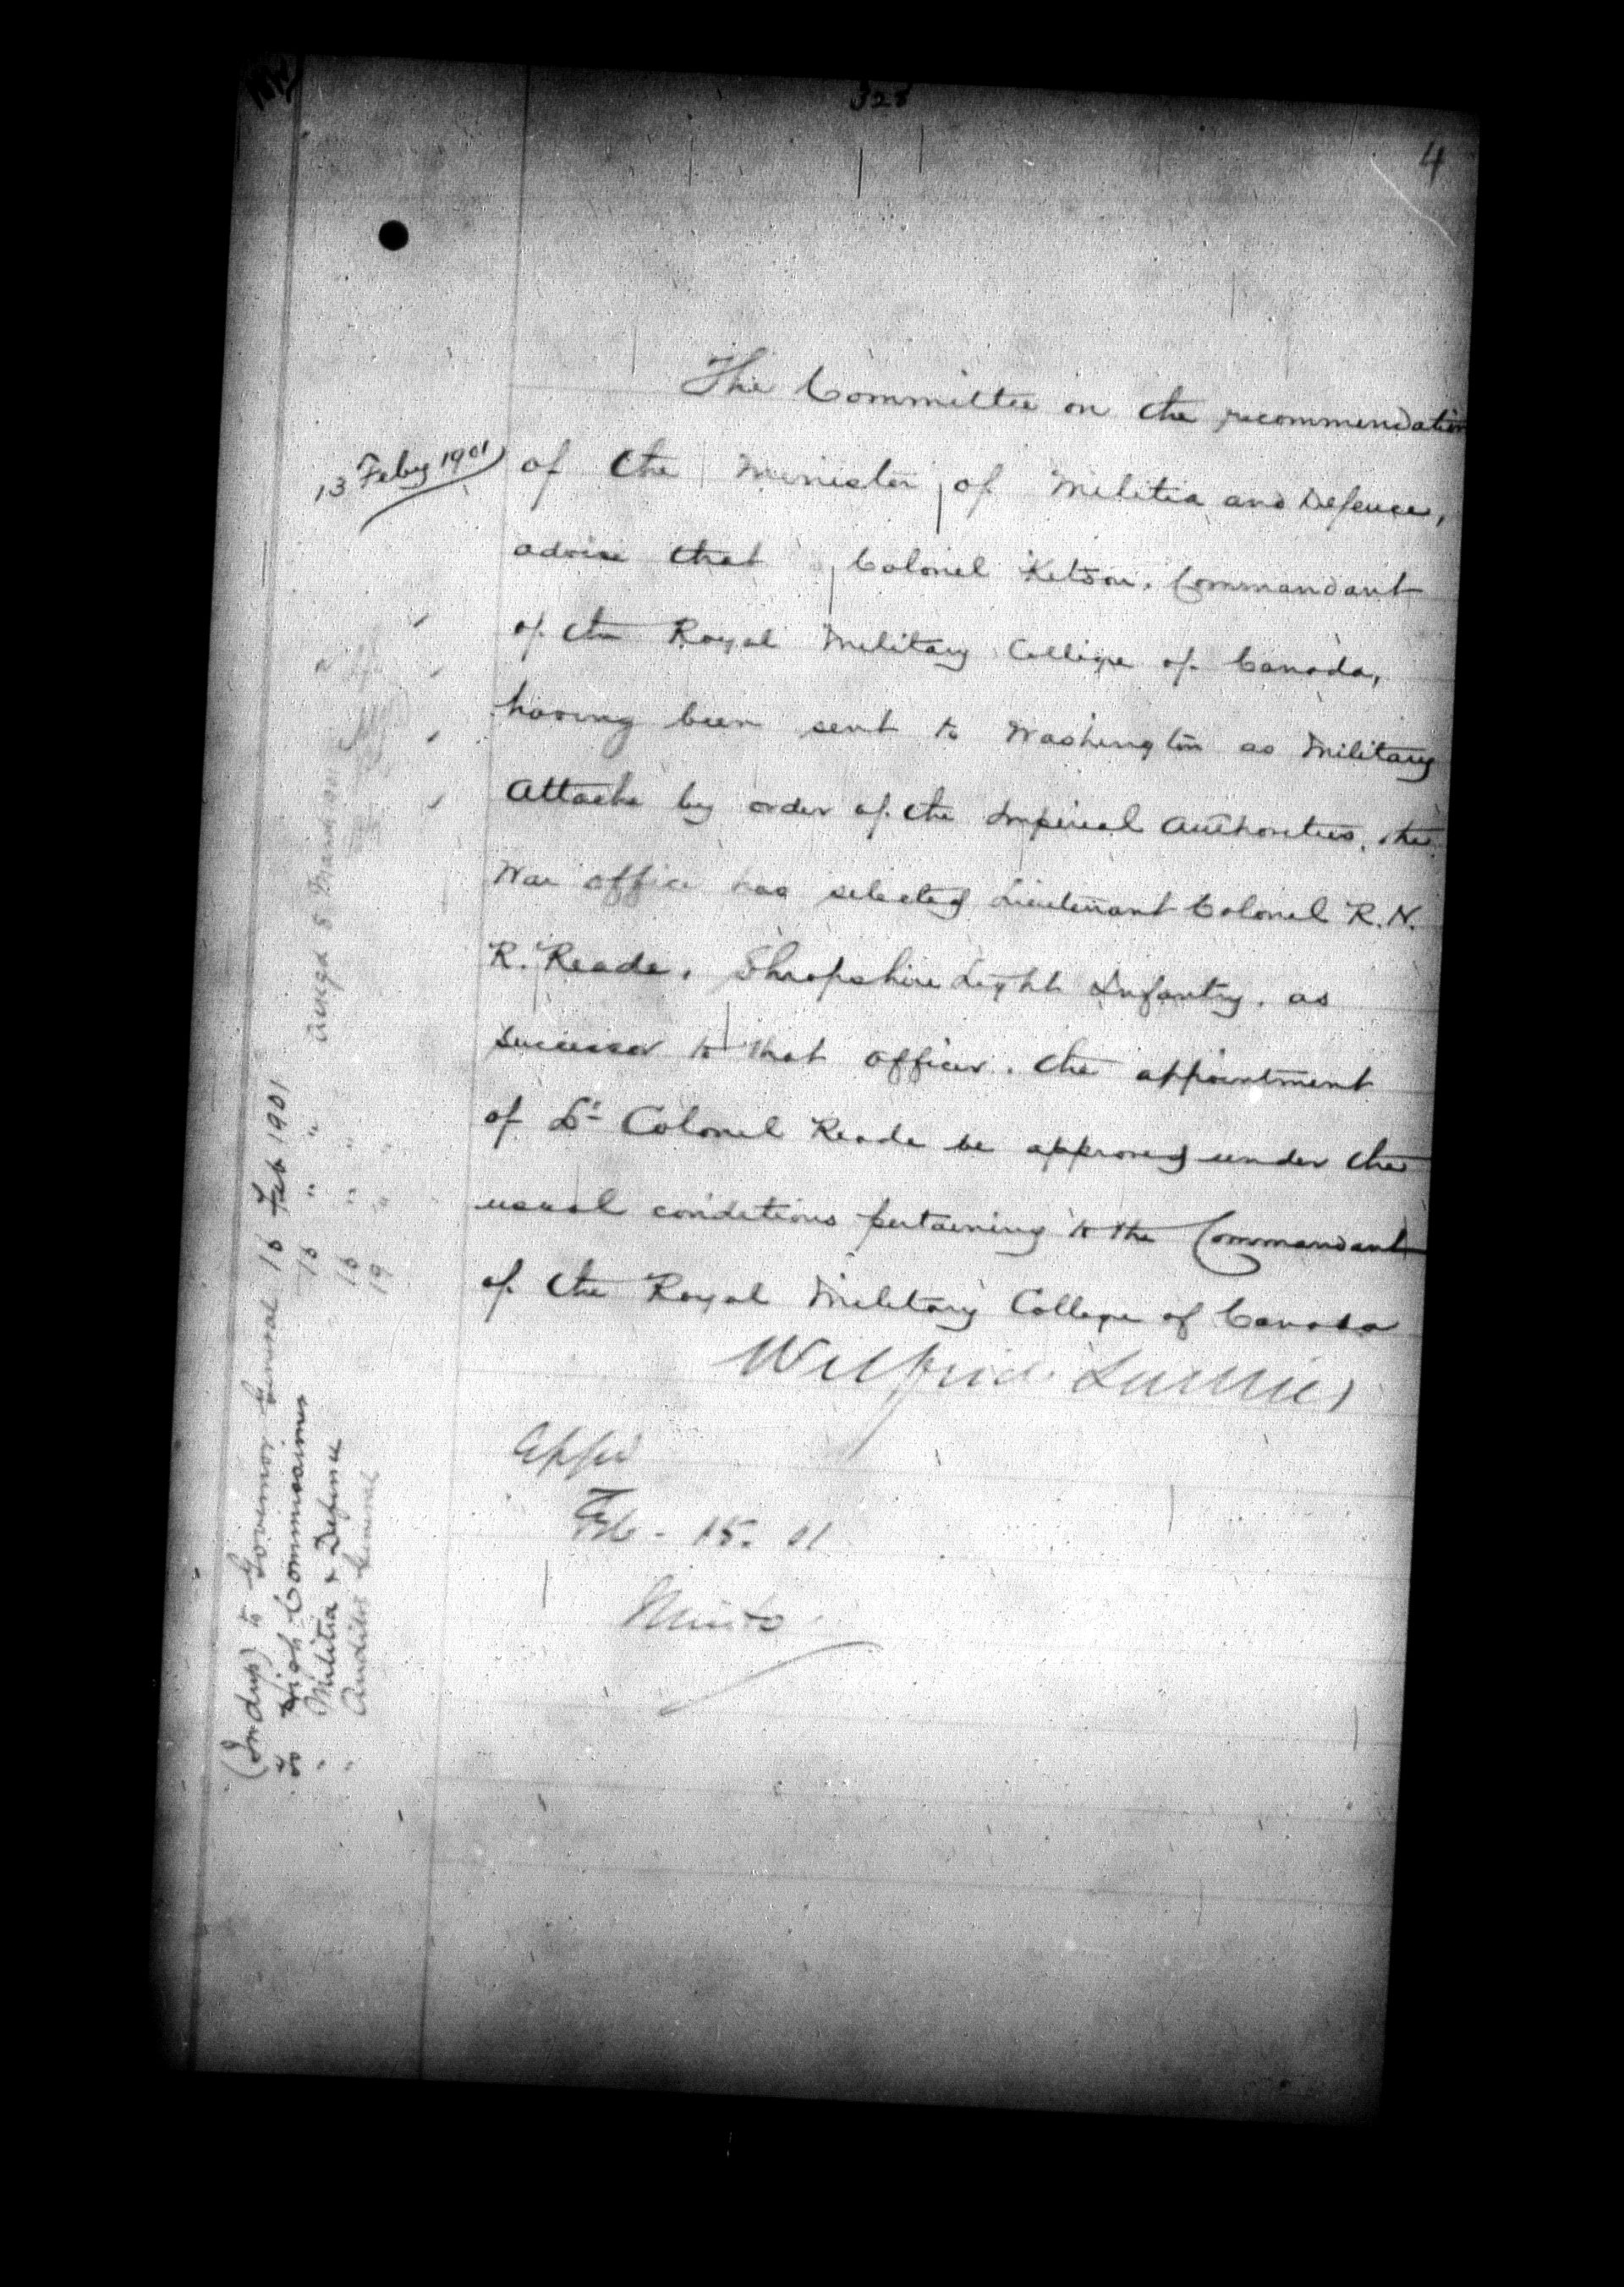 328
4
The Committee on the recommendation
13 Feby 1901
of the Minister of Militia and Defence,
advise that Colonel Kitson, Commandant
of the Royal Military College of Canada,
having been sent to Washington as Military
Attache by order of the Imperial Authorities, the
War Office has selected Lieutenant Colonel R.N.
R. Reade, Shropshire Light Infantry, as
successor to that officer, the appointment
of Lt Colonel Reade be approved under the
usual conditions pertaining to the Commandant
of the Royal Military College of Canada
Wilfrid Laurier
Appd
Feb - 15. 01
Minto
(In dup) to Governor General 16 Feb 1901
to High Commissioner 16 " " Ackgd 5 March 1901
" Militia & Defence 16 " "
" Auditor General 19 " "